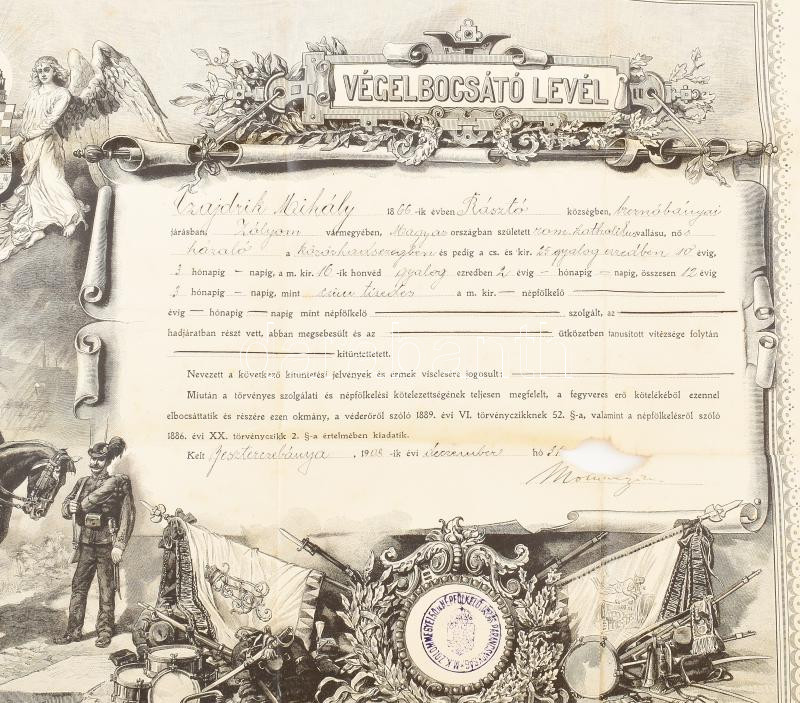 VÉGELBOCSÁTÓ LEVÉL
Czajdzik Mihály 1866-ik évben Rásztó községben, breznóbányai
járásban, Zólyom vármegyében, Magyar országban született rom. katholikus vallásu, nős
a közös hadseregben és pedig a cs. és kir. 25 gyalog ezredében 10 évig,
3 hónapig – napig, a m. kir. 16-ik honvéd gyalog ezredben 2 évig – hónapig – napig, összesen 12 évig
3 hónapig – napig, mint czimz. tizedes a m. kir. – népfölkelő
évig – hónapig – napig mint népfölkelő szolgált, az
hadjáratban részt vett, abban megsebesült és az ütközetben tanusitott vitézsége folytán
kitüntettetett.
Nevezett a következő kitüntetési jelvények és érmek viselésére jogosult:
Miután a törvényes szolgálati és népfölkelési kötelezettségének teljesen megfelelt, a fegyveres erő kötelékéből ezennel
elbocsáttatik és részére ezen okmány, a véderőről szóló 1889. évi VI. törvényczikknek 52. §-a, valamint a népfölkelésről szóló
1886. évi XX. törvényczikk 2. §-a értelmében kiadatik.
Kelt Beszterczebánya, 1908-ik évi deczember hó 31